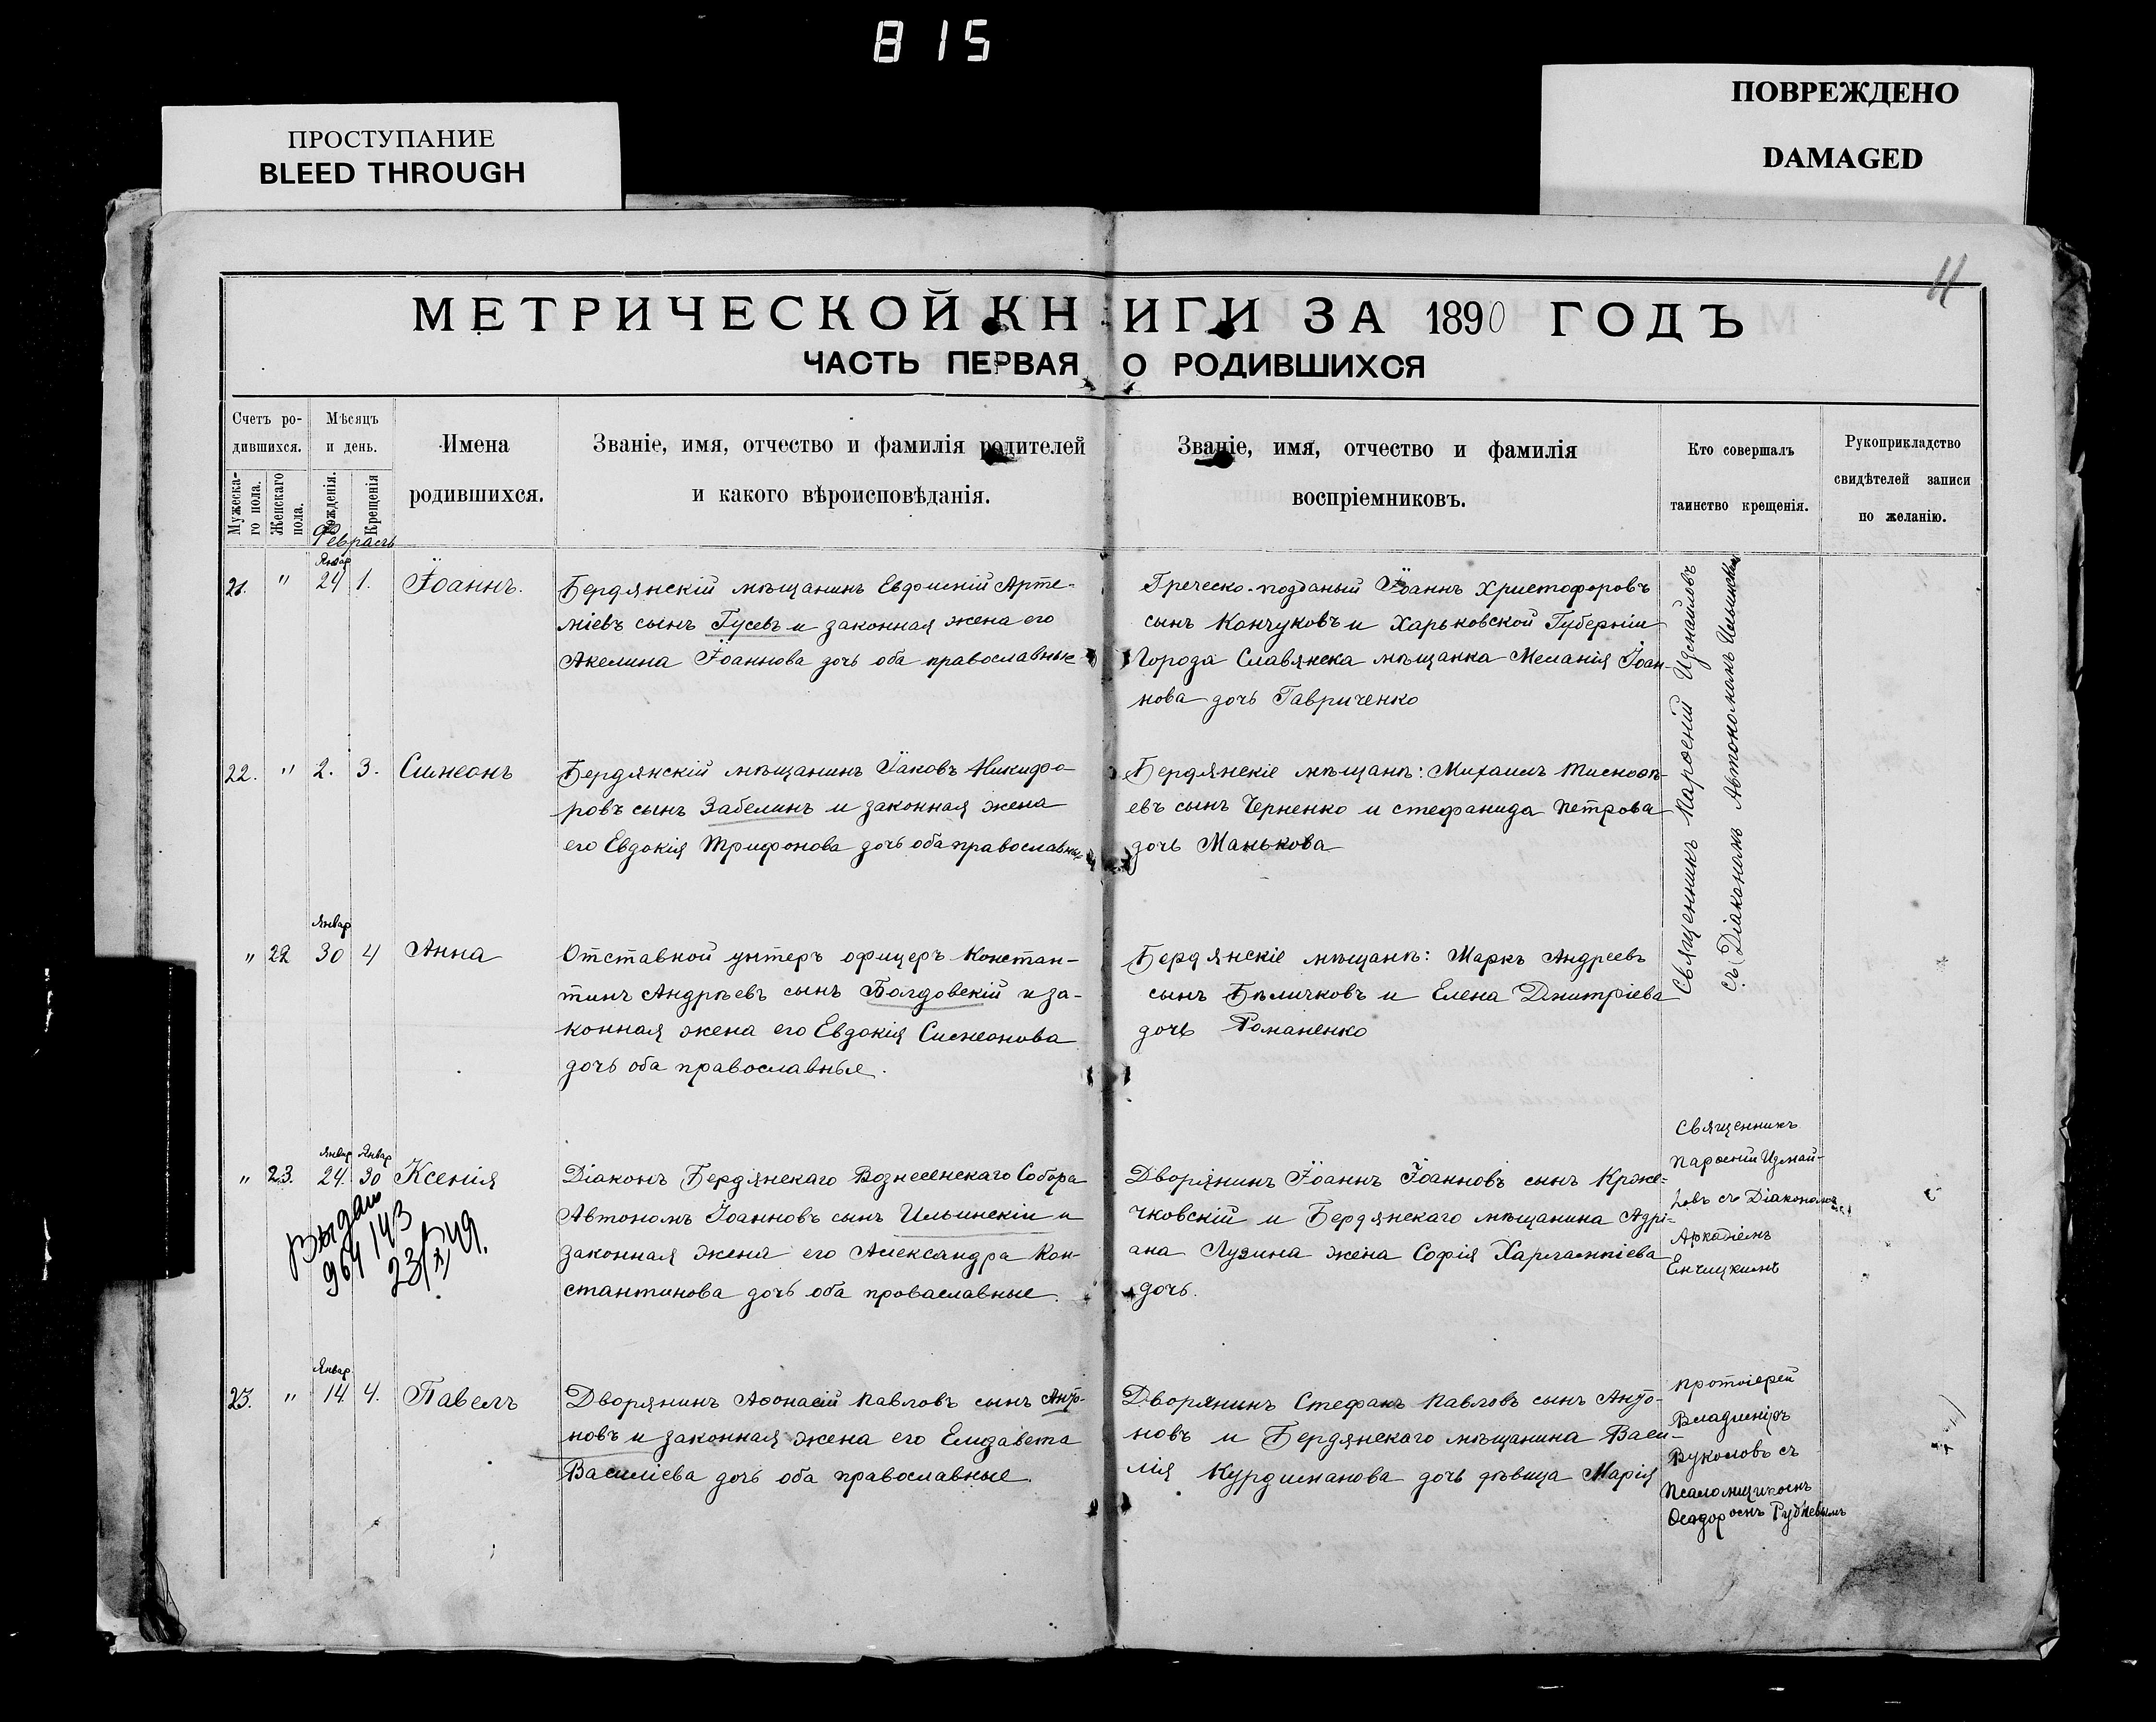 815
ПРОСТУПАНИЕ
BLEED THROUGH
ПОВРЕЖДЕНО
DAMAGED
11
МЕТРИЧЕСКОЙ КНИГИ ЗА 1890 ГОДЪ
ЧАСТЬ ПЕРВАЯ О РОДИВШИХСЯ
Счетъ ро-
дившихся.
Мужеска-
го пола.
Женскаго
пола.
Мѣсяцъ
и день.
Рожденія.
Крещенія
Имена
родившихся.
Званіе, имя, отчество и фамилія родителей
и какого вѣроисповѣданія.
Званіе, имя, отчество и фамилія
воспріемниковъ.
Кто совершалъ
таинство крещенія.
Рукоприкладство
свидѣтелей записи
по желанію.
Февраль
Январ
21. " 24 1. Іоаннъ.
Бердянскій мѣщанинъ Евфимій Арте-
міевъ сынъ Гусевъ и законная жена его
Акелина Іоаннова дочь оба православные
Греческо-подданый Іоаннъ Христофоровъ
сынъ Кончуковъ и Харьковской Губерніи
Города Славянска мѣщанка Меланія Іоан-
нова дочь Гавриченко
Священникъ Парѳеній Измаиловъ
съ Діакономъ Автономомъ Ильинскимъ
22. " 2. 3. Симеонъ
Бердянскій мѣщанинъ Іаковъ Никифо-
ровъ сынъ Забелинъ и законная жена
его Евдокія Трифонова дочь оба православные
Бердянскіе мѣщанѣ: Михаилъ Тимоѳѣ-
евъ сынъ Черненко и Стефанида Петрова
дочь Манькова
Январ
" 22 30 4 Анна
Отставной унтеръ офицеръ Констан-
тинъ Андрѣевъ сынъ Болдовскій и за-
конная жена его Евдокія Симеонова
дочь оба православныя.
Бердянскіе мѣщанѣ: Маркъ Андреевъ
сынъ Бѣличковъ и Елена Дмитріева
дочь Романенко
Январ Январ
" 23. 24. 30 Ксенія
Выдано
964 143
23/X 49.
Діаконъ Бердянскаго Вознесенскаго Собора
Автономъ Іоанновъ сынъ Ильинскіи и
законная жена его Александра Кон-
стантинова дочь оба проваславные.
Дворянинъ Іоаннъ Іоанновъ сынъ Крже-
чковскій и Бердянскаго мѣщанина Адрі-
ана Лузина жена Софія Харлампіева
дочь.
Священникъ
Парѳеній Измаи-
ловъ съ Діакономъ
Аркадіемъ
Енчицкимъ
Январ
23. " 14 4. Павелъ
Дворянинъ Аѳонасій Павловъ сынъ Анто-
новъ и законная жена его Елизавета
Василіева дочь оба православные.
Дворянинъ Стефанъ Павловъ сынъ Анто-
новъ и Бердянского мѣщанина Васи-
лія Курдиманова дочь дѣвица Марія
Протоіерей
Владиміръ
Вуколовъ съ
Псаломщикомъ
Ѳеодоромъ Рублевымъ